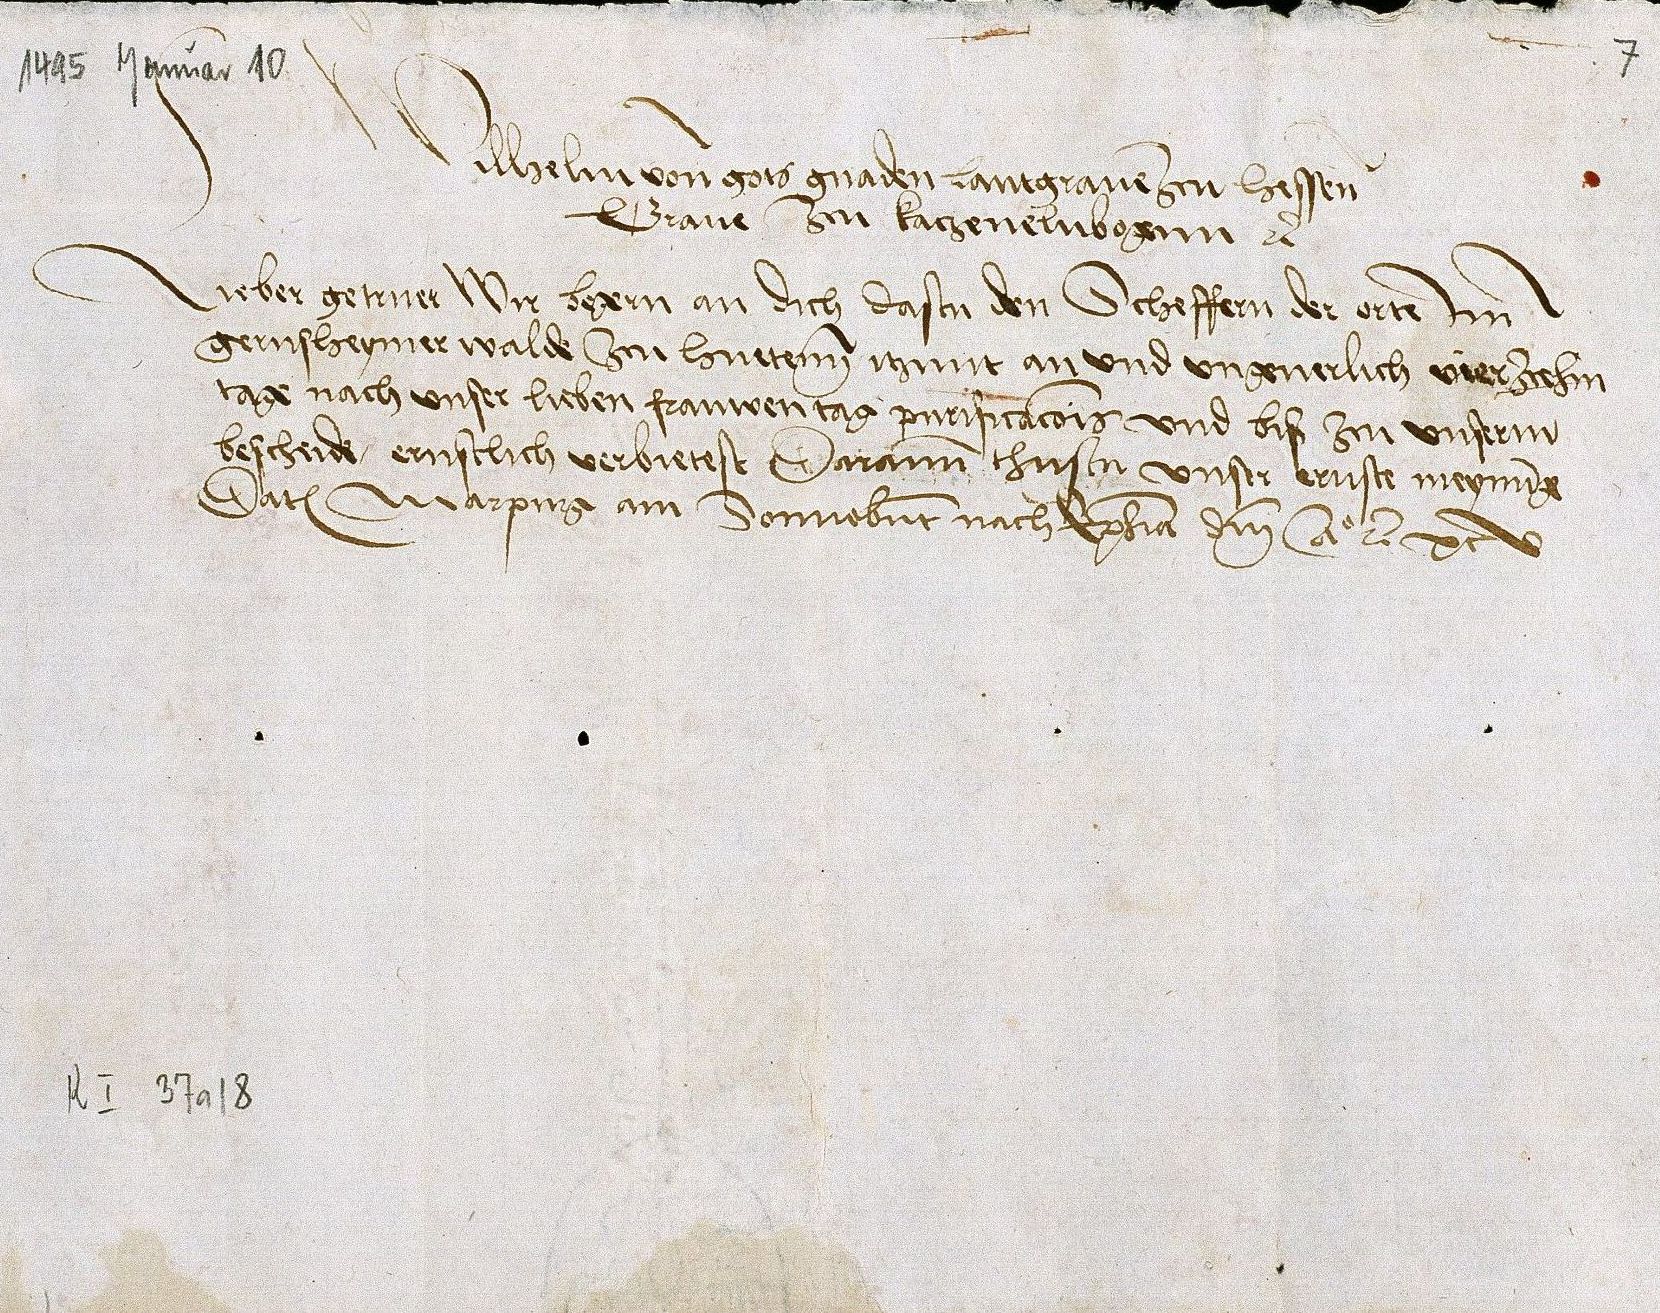 1495 Januar 10
7
Wilhelm von gots gnaden Lantgraue zcu Hessen
Graue zcu Katzenelnbogenn ꝛc
Lieber getruer Wir begern an dich dastu den Scheffern der orte Im
gernszheymer walde zcu huetenn itzunt an vnd vngeuerlich vierzcehin
tage nach vnser lieben frauwen tag purificacois vnd bisz zcu vnserm
bescheide ernstlich verbietest Darann thustu vnser ernste meynung
Dat Marpurg am Sonnobent nach Epiphia dm Ao ꝛc xcv
R I 37a/8